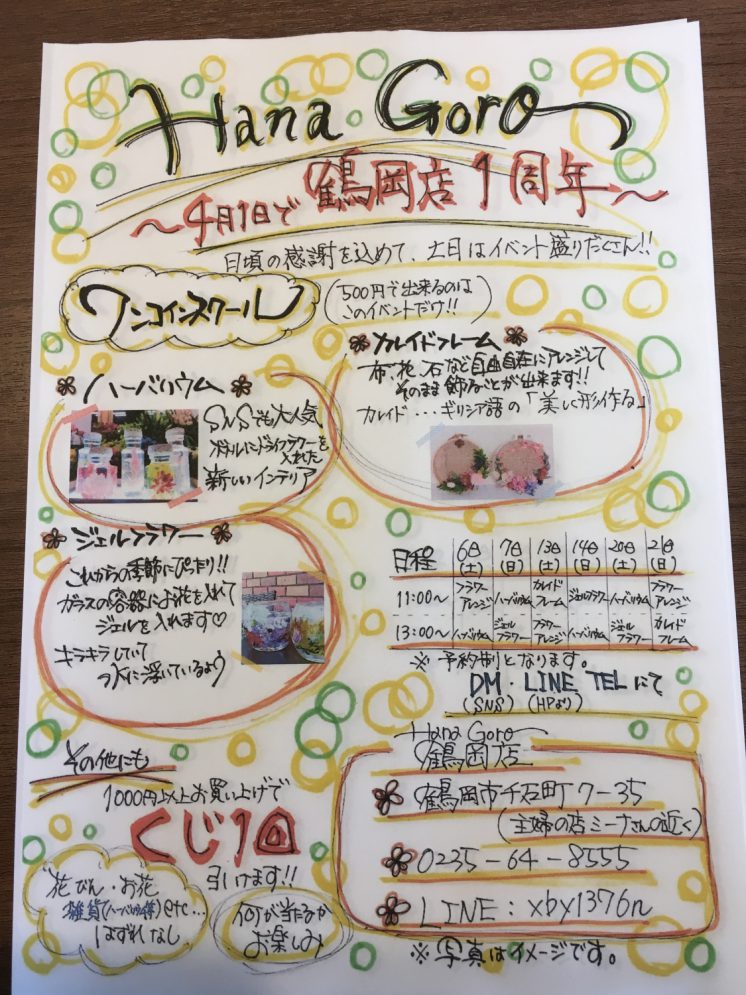 Hana Goro
〜4月1日で 鶴岡店1周年〜
日頃の感謝を込めて、土日はイベント盛りだくさん!!
ワンコインスクール
(500円で出来るのは
このイベントだけ!!)
カレイドフレーム
布、花、石など自由自在にアレンジして
そのまま飾ることが出来ます!!
カレイド...ギリシア語の「美しく形作る」
ハーバリウム
SNSでも大人気
ボトルにドライフラワーを
入れた
新しいインテリア
ジェルフラワー
これからの季節にぴったり!!
ガラスの容器にお花を入れて
ジェルを入れます♡
キラキラしていて
水に浮いているよう
日程 6日(土) 7日(日) 13日(土) 14日(日) 20日(土) 21日(日)
11:00〜 フラワーアレンジ ハーバリウム カレイドフレーム ジェルフラワー ハーバリウム フラワーアレンジ
13:00〜 ハーバリウム ジェルフラワー フラワーアレンジ ハーバリウム ジェルフラワー カレイドフレーム
※予約制となります。
DM・LINE TELにて
(SNS) (HPより)
その他にも
1000円以上お買い上げで
くじ1回
引けます!!
花びん・お花
雑貨(ハーバリウム等)etc...
はずれなし
何が当るか
お楽しみ
Hana Goro
鶴岡店
鶴岡市千石町7-35
(主婦の店ミーナさんの近く)
0235-64-8555
LINE:xby1376n
※写真はイメージです。